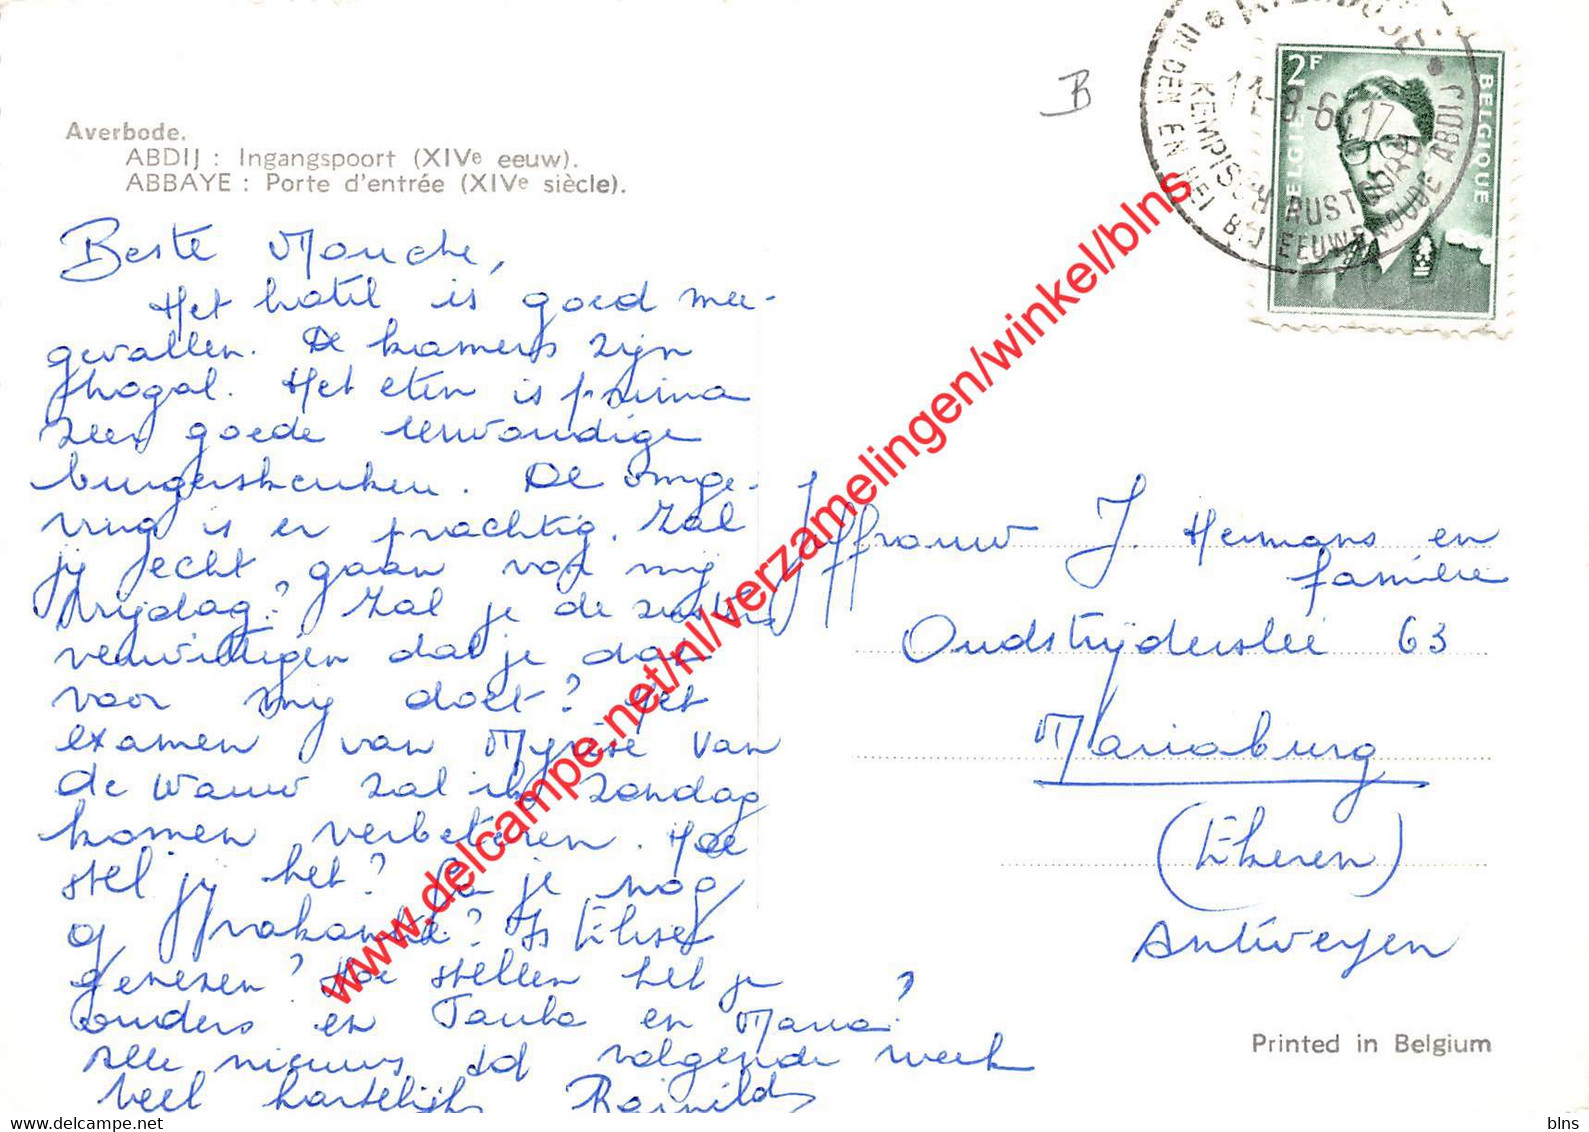 Averbode.
ABDIJ : Ingangspoort (XIVe eeuw).
ABBAYE : Porte d'entrée (XIVe siècle).
B
2F
BELGIE
BELGIQUE
IN DEN EN HEI BIJ EEUWENOUDE ABDIJ
KEMPISCH RUSTOORD
Beste Mouche,
Het hotel is goed mee-
gevallen. De kamers zijn
Het eten is prima
zeer goede eenvoudige
burgerskeuken. De omge-
ving is er prachtig. Zal
jij echt gaan voor mij
Vrijdag? Zal je de zusters
verwittigen dat je dat
voor mij doet? Het
examen van Van
de Wauw zal ik Zondag
komen verbeteren. Hoe
stel jij het? Ga je nog
op vakantie? Is
genezen? Hoe stellen het je
ouders en en Maria?
Alle nieuws tot volgende week
Veel hartelijks Reinilde
Juffrouw J. Heimans en
familie
Oudstrijderslei 63
Mariaburg
(Ekeren)
Antwerpen
Printed in Belgium
www.delcampe.net/nl/verzamelingen/winkel/blns
www.delcampe.net
blns